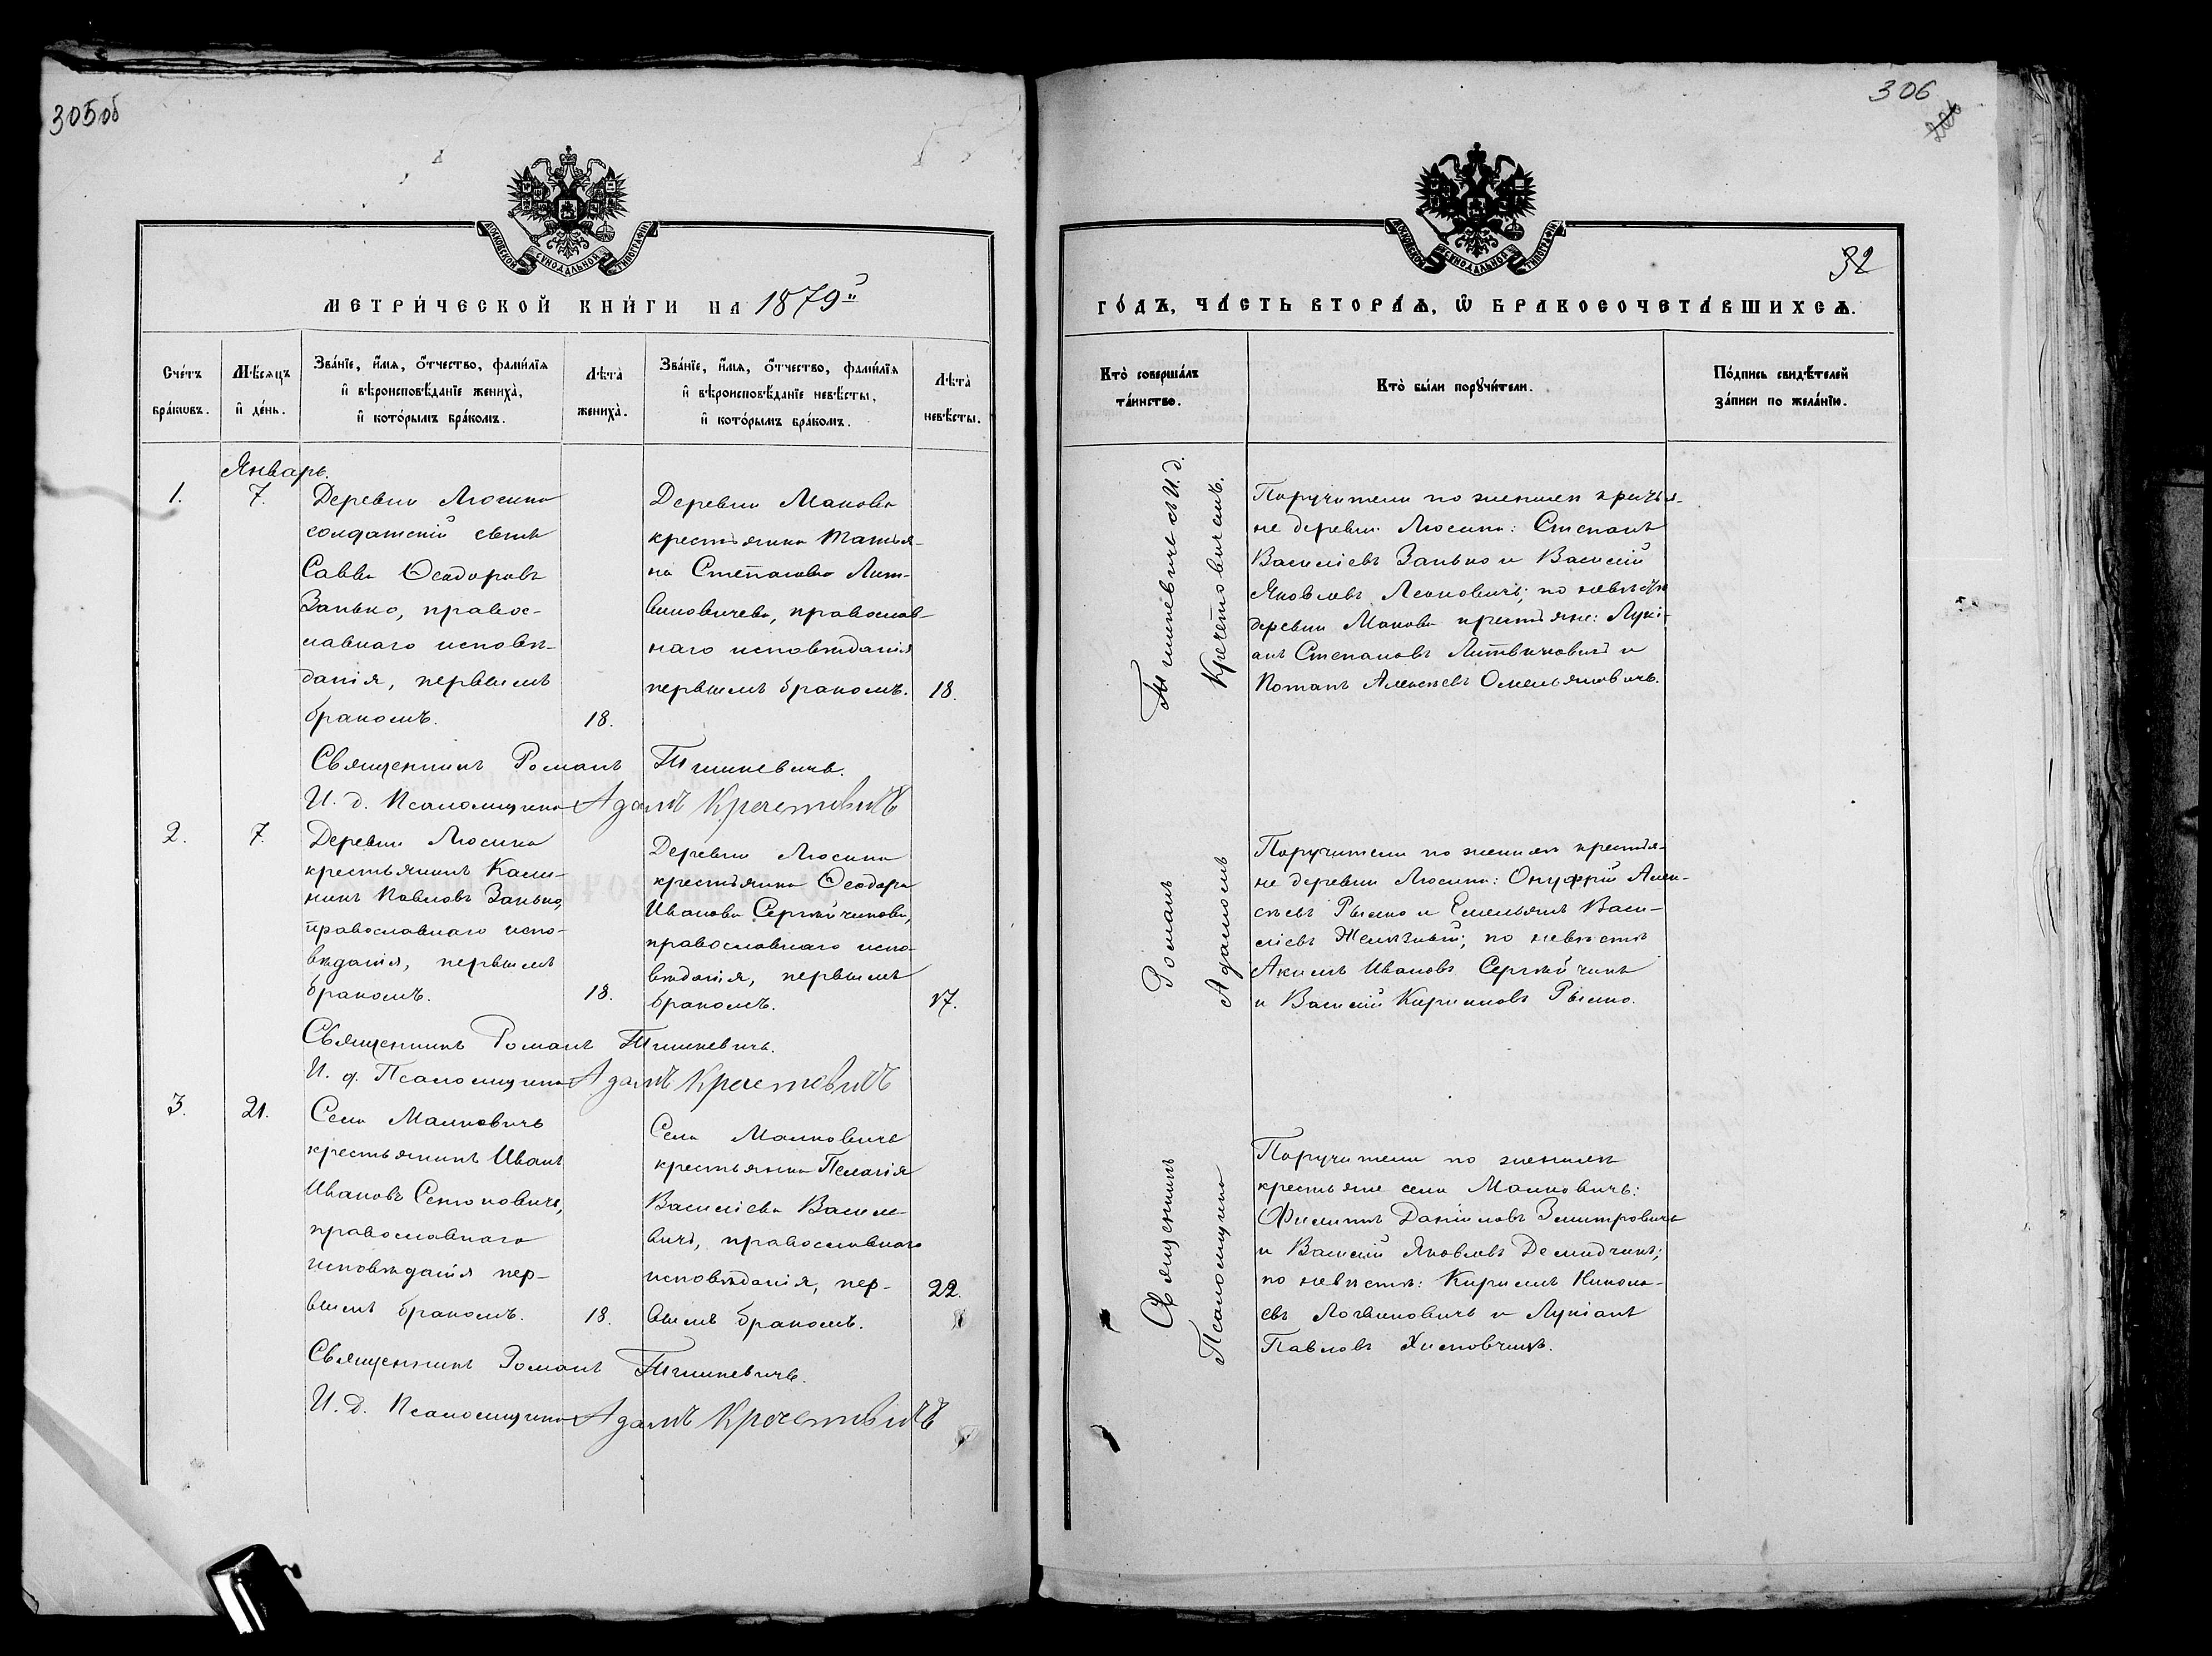 305об
МОСКОВСКОЙ СѴНОДАЛЬНОЙ ТИПОГРАФІИ
МЕТРИ́ЧЕСКОЙ КНИ́ГИ НА 1879й
Сче́тъ бра́кѡвъ.
Мѣ́сяцъ и҆ де́нь.
Зва́нїе, и҆́мѧ, ѻ҆́тчество, фами́лїѧ
и҆ вѣроисповѣ́данїе жениха̀,
и҆ кото́рымъ бра́комъ.
Лѣта̀ жениха̀.
Зва́нїе, и҆́мѧ, ѻ҆́тчество, фами́лїѧ
и҆ вѣроисповѣ́данїе невѣ́сты,
и҆ кото́рымъ бра́комъ.
Лѣта̀ невѣ́сты.
Январь.
1.
7.
Деревни Люсина
солдатскій сынъ
Савва Ѳеодоровъ
Занько, правос-
лавнаго исповѣ-
данія, первымъ
бракомъ.
18.
Деревни Макова
крестьянка Татья-
на Степанова Лит-
виновичева, православ-
наго исповѣданія
первымъ бракомъ.
18.
Священникъ Романъ Тишкевичъ.
И. д. Псаломщика Адамъ Кречетовичъ
2.
7.
Деревни Люсина
крестьянинъ Кали-
никъ Павловъ Занько,
православнаго испо-
вѣданія, первымъ
бракомъ.
18.
Деревни Люсина
крестьянка Ѳеодора
Иванова Сергѣйчикова,
православнаго испо-
вѣданія, первымъ
бракомъ.
17.
Священникъ Романъ Тишкевичъ.
И. д. Псаломщика Адамъ Кречетовичъ
3.
21.
Села Малковичъ
крестьянинъ Иванъ
Ивановъ Сенюковичъ,
православнаго
исповѣданія пер-
вымъ бракомъ.
18.
Села Малковичъ
крестьянка Пелагія
Василіева Василе-
вичъ, православнаго
исповѣданія, пер-
вымъ бракомъ.
22.
Священникъ Романъ Тишкевичъ.
И. д. Псаломщика Адамъ Кречетовичъ
306
32
МОСКОВСКОЙ СѴНОДАЛЬНОЙ ТИПОГРАФІИ
ГО́ДЪ, ЧА́СТЬ ВТОРА́Ѧ, Ѽ БРАКОСОЧЕТА́ВШИХСѦ.
Кто̀ соверша́лъ
та́инство.
Кто̀ бы́ли порꙋчи́тели.
По́дпись свидѣ́телей
за́писи по жела́нїю.
Священникъ Романъ Тишкевичъ съ И. д.
Псаломщика Адамомъ Кречетовичемъ.
Поручители по женихѣ крестья-
не деревни Люсина: Степанъ
Василіевъ Занько и Василій
Яковлевъ Леоновичъ; по невѣстѣ
деревни Макова крестьяне: Лукі-
анъ Степановъ Литвиновичъ и
Потапъ Алексѣевъ Омельяновичъ.
Поручители по женихѣ крестья-
не деревни Люсина: Онуфрій Алек-
сѣевъ Рымко и Емельянъ Васи-
ліевъ Желѣзный; по невѣстѣ
Акимъ Ивановъ Сергѣйчикъ
и Василій Кириловъ Рымко.
Поручители по женихѣ
крестьяне села Малковичъ:
Филиппъ Даніиловъ Змитровичъ
и Василій Яковлевъ Демидчикъ;
по невѣстѣ: Кириллъ Никола-
евъ Логвиновичъ и Лукіанъ
Павловъ Хиловчикъ.